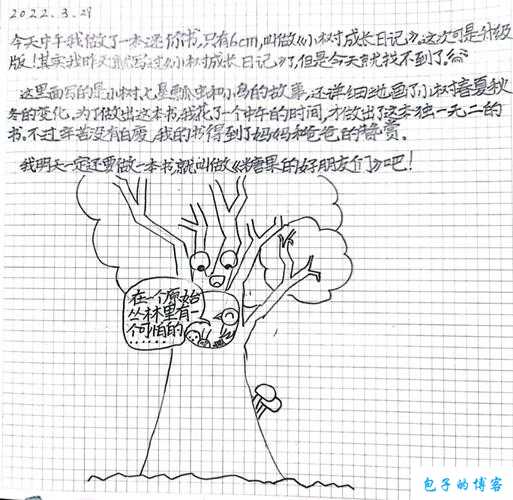 2022.3.29
今天中午我做了一本迷你书,只有6cm,叫做《小树成长日记》。这次可是升级
版!其实我昨天就写过《小树成长日记》了,但是今天就找不到了。
这里面写的是小树、七星瓢虫和小鸟的故事,还详细地画了小树春夏秋
冬的变化。为了做出这本书,我花了一个中午的时间,才做出了这本独一无二的
书。不过辛苦没有白费,我的书得到了妈妈和爸爸的赞赏。
我明天一定还要做一本书,就叫做《糖果的好朋友们》吧!
在一个原始
丛林里有一
个可怕的
……
包子的博客